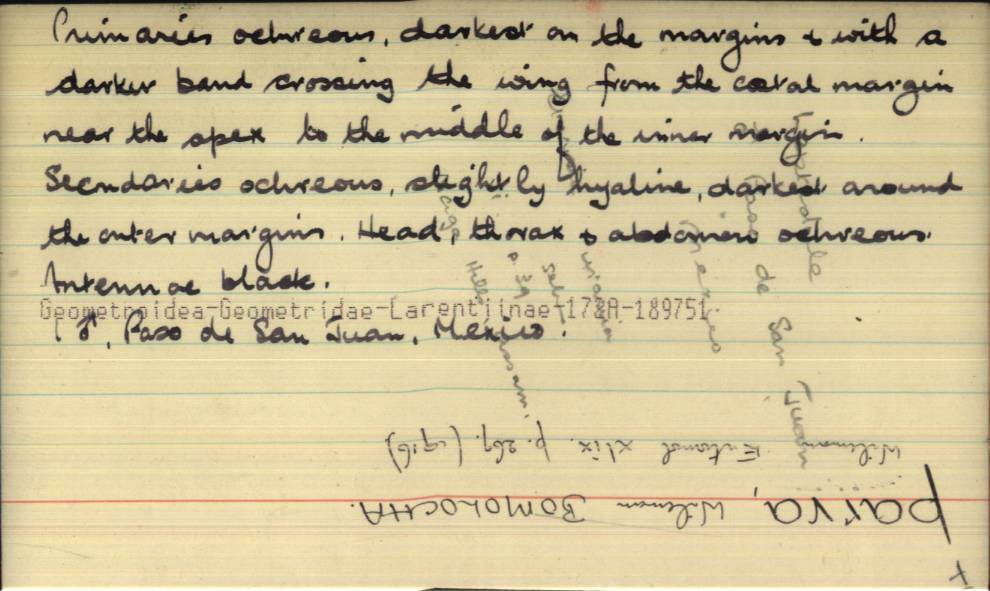 Primaries ochreous, darkest on the margins & with a
darker band crossing the wing from the costal margin
near the apex to the middle of the inner margin.
Secondaries ochreous, slightly hyaline, darkest around
the outer margins. Head, thorax & abdomen ochreous.
Antennae black.
Geometroidea-Geometridae-Larentiinae-172A-189751
1 ♂, Paso de San Juan, Mexico.
Paso de San Juan
Mexico
Wileman Entomol xlix. p. 269. (1916)
parva, Wileman BOMOLOCHA.